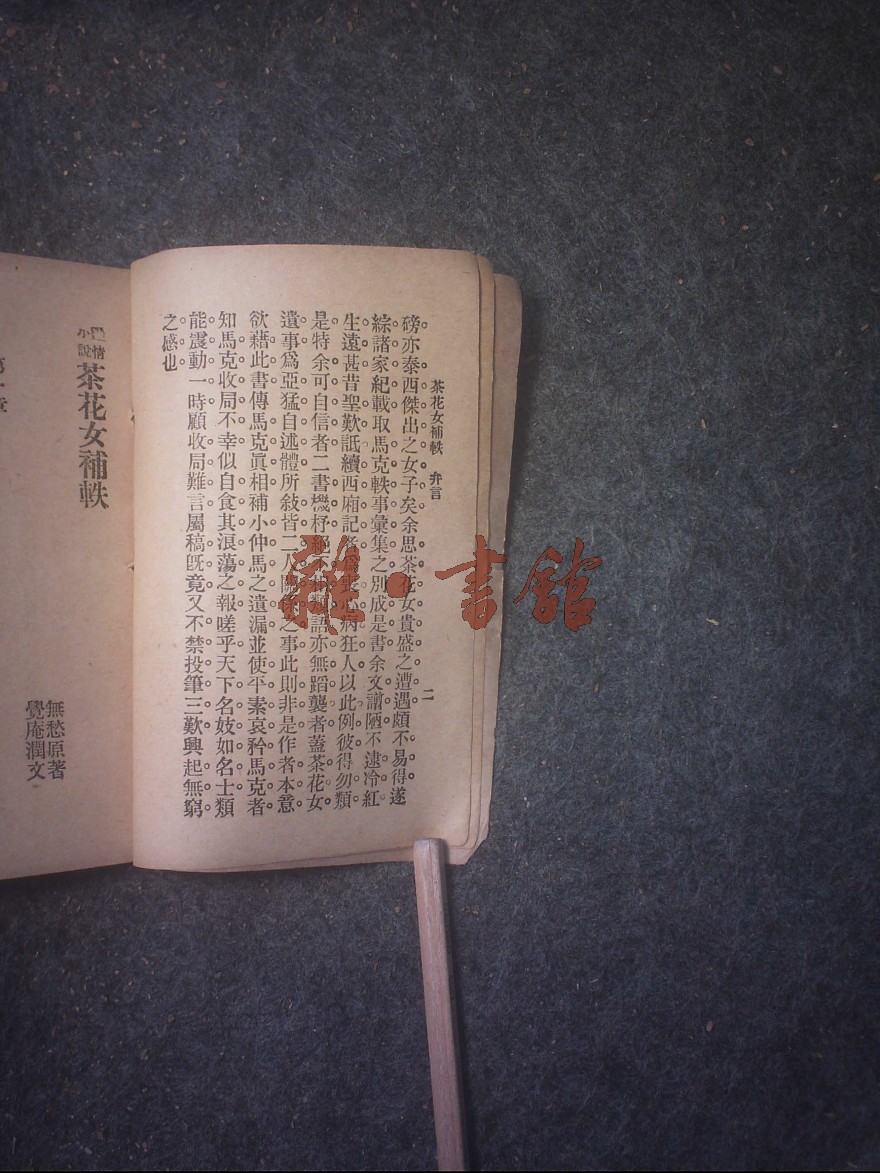 茶花女補軼 弁言 二
磅亦泰西傑出之女子矣余思茶花女貴盛之遭遇頗不易得遂
綜諸家紀載取馬克軼事彙集之別成是書余文譾陋不逮冷紅
生遠甚昔聖歎詆續西廂記者爲喪心病狂人以此例彼得勿類
是特余可自信者二書機杼絕不類語亦無蹈襲者蓋茶花女
遺事爲亞猛自述體所敍皆二人關係之事此則非是作者本意
欲藉此書傳馬克眞相補小仲馬之遺漏並使平素哀矜馬克者
知馬克收局不幸似自食其浪蕩之報嗟乎天下名妓如名士類
能震動一時顧收局難言屬稿旣竟又不禁投筆三歎興起無窮
之感也
情小說
茶花女補軼
無愁原著
覺庵潤文
雜·書館